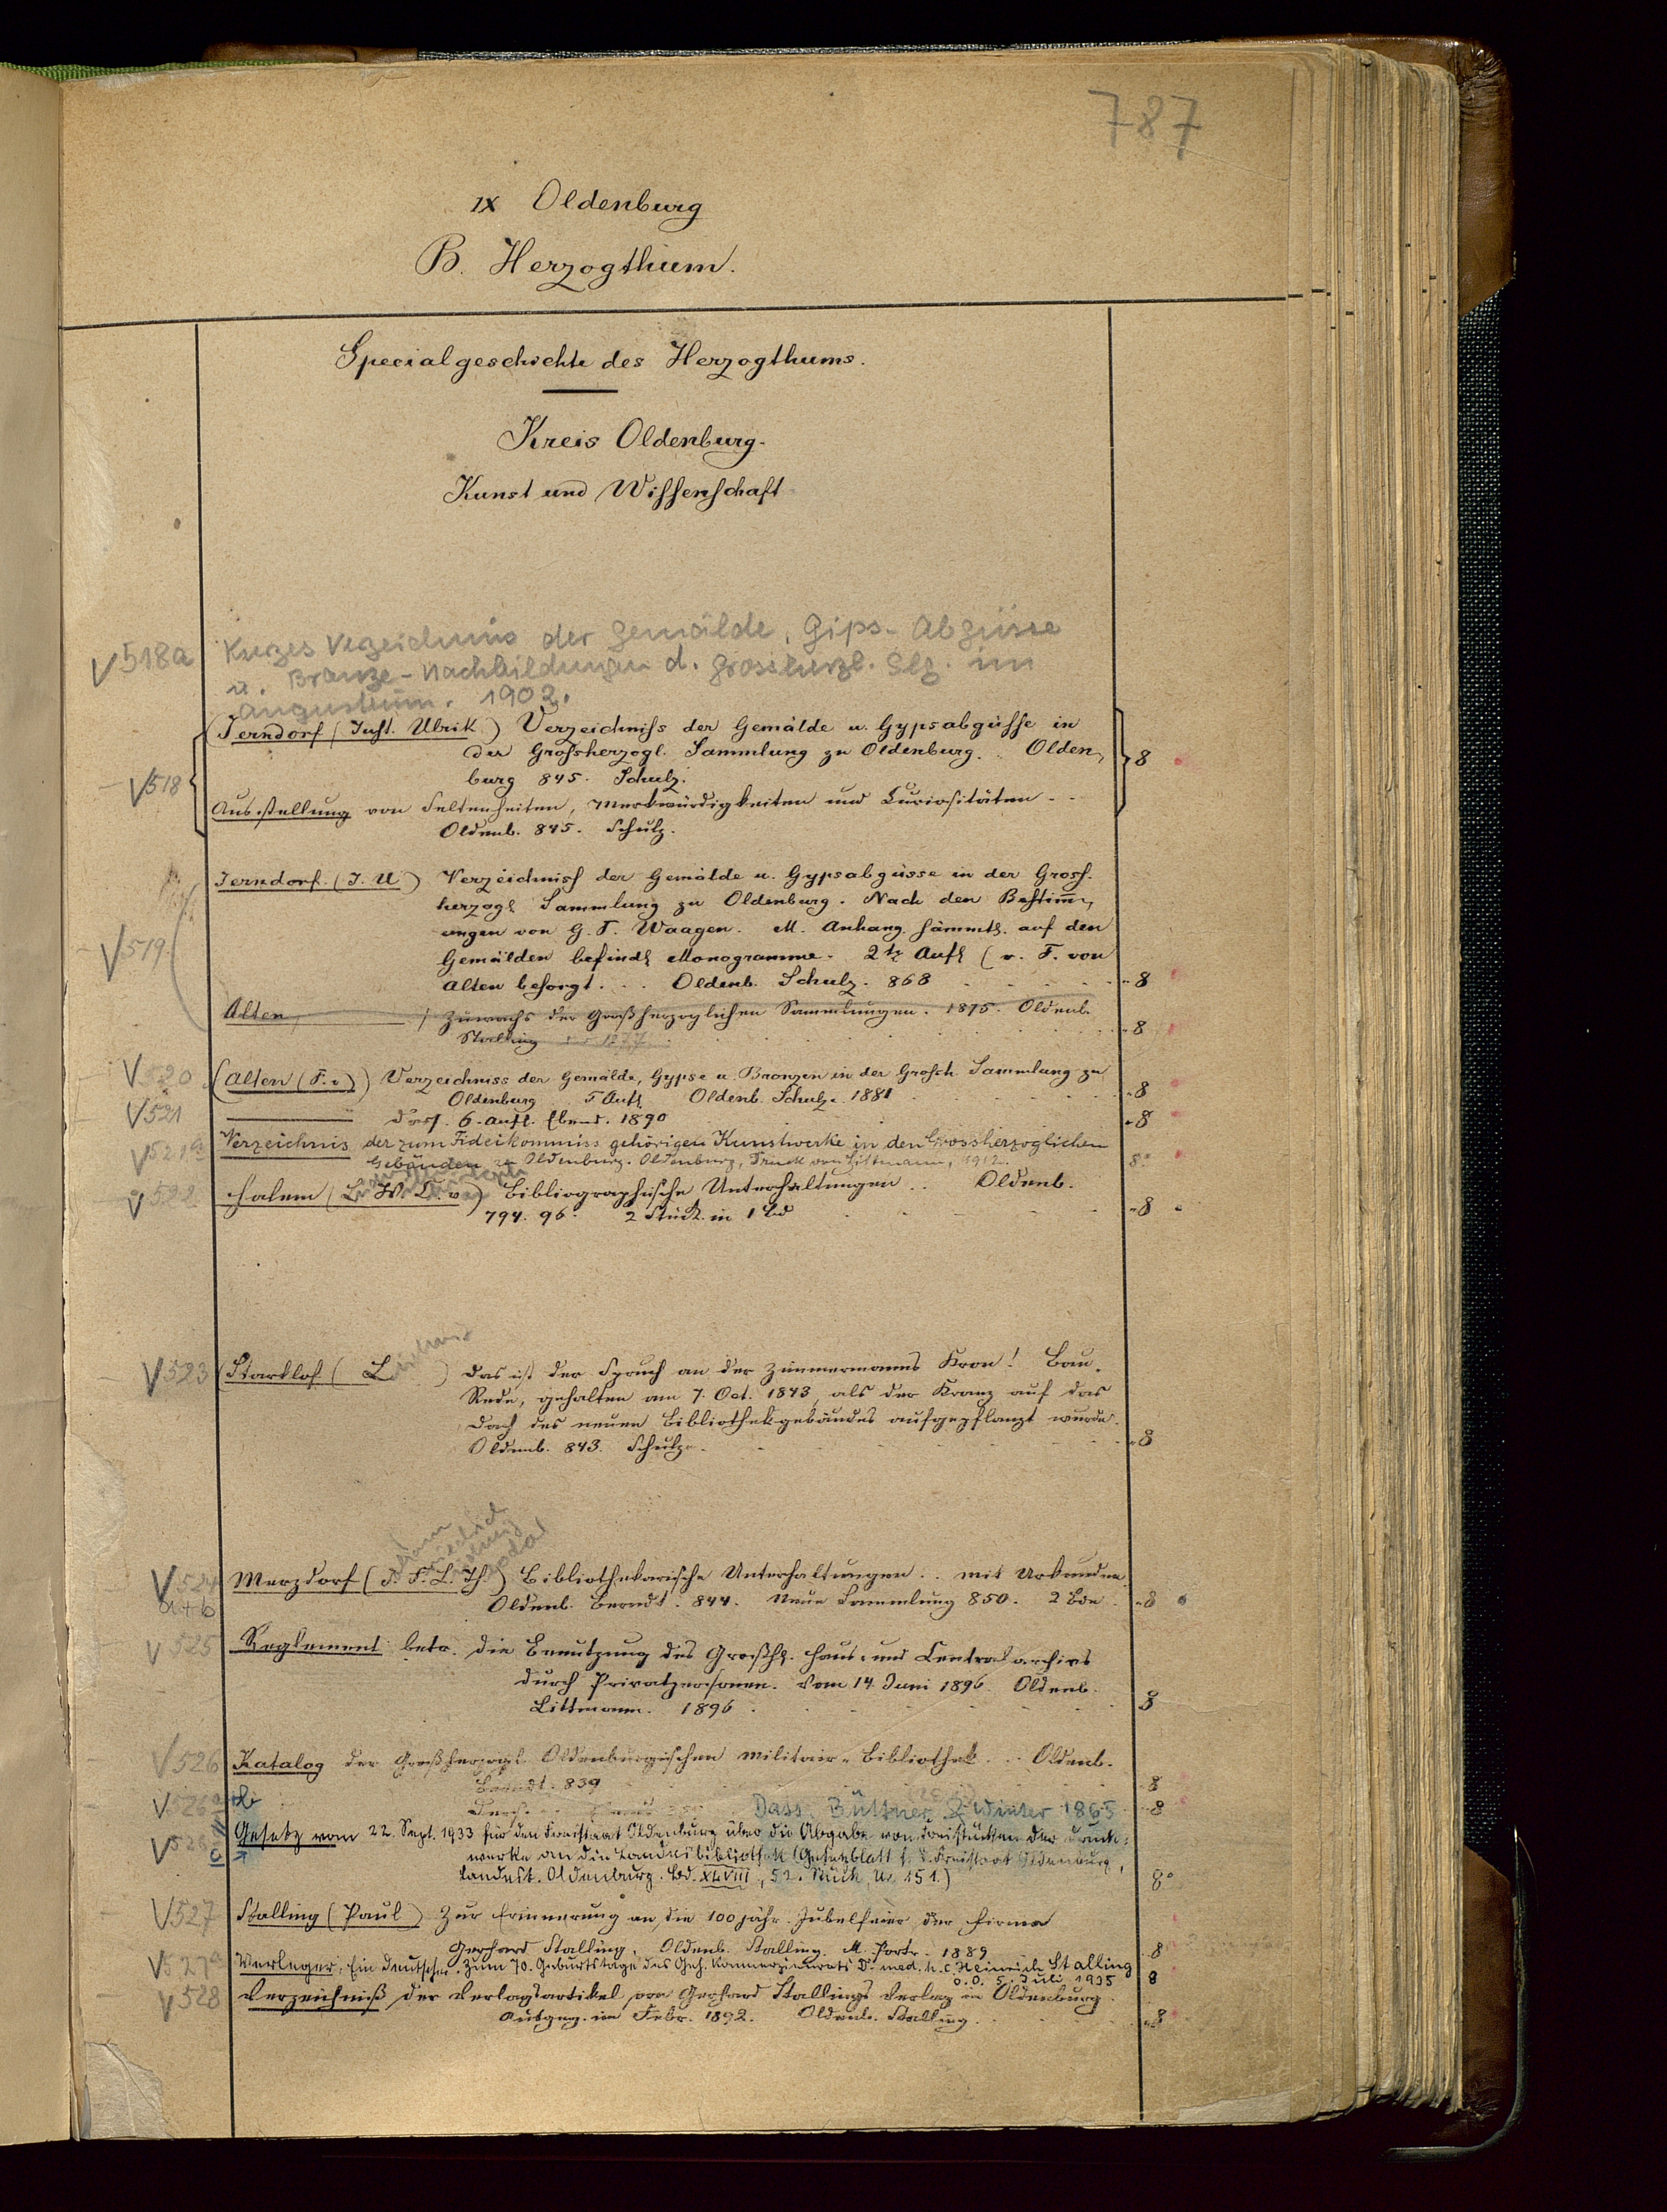 787
IX Oldenburg
B. Herzogthum.
Specialgeschichte des Herzogthums.
Kreis Oldenburg.
Kunst und Wissenschaft
V 518a Kurzes Verzeichnis der Gemälde, Gips-Abgüsse
u. Bronze-Nachbildungen d. Grossherzl. Slg. im
Augusteum. 1902.
(Jerndorf (Just. Ulrik) Verzeichniss der Gemälde u. Gypsabgüsse in
der Grossherzogl. Sammlung zu Oldenburg. . Olden-
burg 845. Schulz. 8
V 518
Ausstellung von Seltenheiten, Merkwürdigkeiten und Curiositäten . .
Oldenb. 845. Schulz.
Jerndorf. (J. U.) Verzeichniss der Gemälde u. Gypsabgüsse in der Gross-
herzogl Sammlung zu Oldenburg. Nach den Bestim̅-
V 519. ungen von G. F. Waagen. M. Anhang. sämmtl. auf den
Gemälden befindl Monogramme. 2te Aufl (v. F. von
Alten besorgt. . . Oldenb. Schulz. 868 8
Alten, Zuwachs der Großherzoglichen Sammlungen. 1875. Oldenb.
Stalling 1877. 8
V 520 (Alten (F. v.)) Verzeichniss der Gemälde, Gypse u. Bronzen in der Grossh. Sammlung zu
Oldenburg 5 Aufl. Oldenb. Schulz. 1881 8
V 521 Dass. 6. Aufl. Ebend. 1890 8
V 521a Verzeichnis der zum Fideikommiss gehörigen Kunstwerke in den Grossherzoglichen
Gebäuden zu Oldenburg. Oldenburg, Druck von Littmann, 1912. 8°
V 522 Halem (L. W. C. v.) Bibliographische Unterhaltungen . . Oldenb.
794. 96. 2 Stück. in 1 Bd 8
V 523 (Starklof (L ) Das ist der Spruch an der Zimmermanns Kron! Bau-
Rede, gehalten am 7. Oct. 1843, als der Kranz auf das
Dach des neuen Bibliothekgebäudes aufgepflanzt wurde.
Oldenb. 843. Schulze. 8
Friedrich
Ludwig
V 524 a+b Merzdorf (J. F. L. Th.) Bibliothekarische Unterhaltungen . . mit Urkunden.
Oldenb. Berndt. 844. Neue Sammlung 850. 2 Bde. 8
V 525 Reglement betr. die Benutzung des Großhl. Haus- und Centralarchivs
durch Privatpersonen. Vom 14. Juni 1896. Oldenb.
Littmann. 1896 8
V 526 Katalog der Großherzogl. Oldenburgischen Militair-Bibliothek . . . Oldenb.
Berndt. 839 8
V 526a Dass. Büttner & Winter 1865 8
V 526 Gesetz vom 22. Sept. 1933 für den Freistaat Oldenburg über die Abgabe von Freistücken der Druck-
werke an die Landesbibliothek (Gesetzblatt f. d. Freistaat Oldenburg,
Landest. Oldenburg. Bd. XLVIII, 52. Stück, Nr. 151.) 8°
V 527 Stalling (Paul) Zur Erinnerung an die 100 jähr. Jubelfeier der Firma
Gerhard Stalling. Oldenb. Stalling. M. Portr. 1889 8
V 527a Verleger, Ein deutscher. Zum 70. Geburtstage des Geh. Kommerzienrats Dr. med. h. c. Heinrich Stalling
o. O. 5. Juli 1935 8
V 528 Verzeichniß der Verlagsartikel von Gerhard Stallings Verlag in Oldenburg.
Ausgeg. im Febr. 1892. Oldenb. Stalling. 8